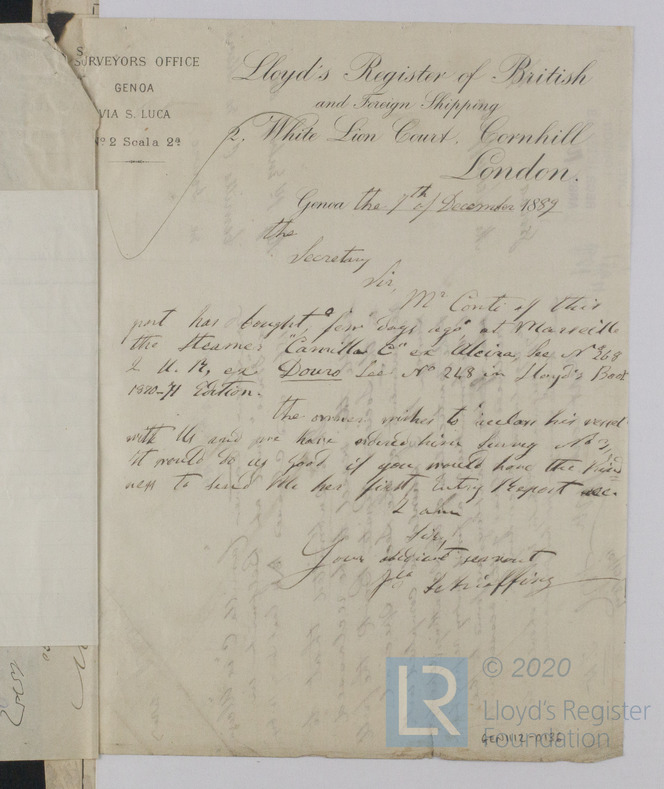 SURVEYORS OFFICE
GENOA
VIA S. LUCA
Nº 2 Scala 2ª
Lloyd's Register of British
and Foreign Shipping
2, White Lion Court, Cornhill
London.
Genoa the 7th of December 1889
the
Secretary
Sir,
Mr Conti of this
port has bought, few days ago, at Marseille
the Steamer "Camilla C" ex Alcira, See Nº 268
L. U. R, ex Douro See Nº 248 in Lloyd's Book
1870-71 Edition.
The owner wishes to his vessel
with Us and we have ordered him Survey Nº 3,
it would do us good if you would have the kind
ness to send Me her first Entry Report
I am
Sir,
Your obedient servant
© 2020
LR
Lloyd's Register
Foundation